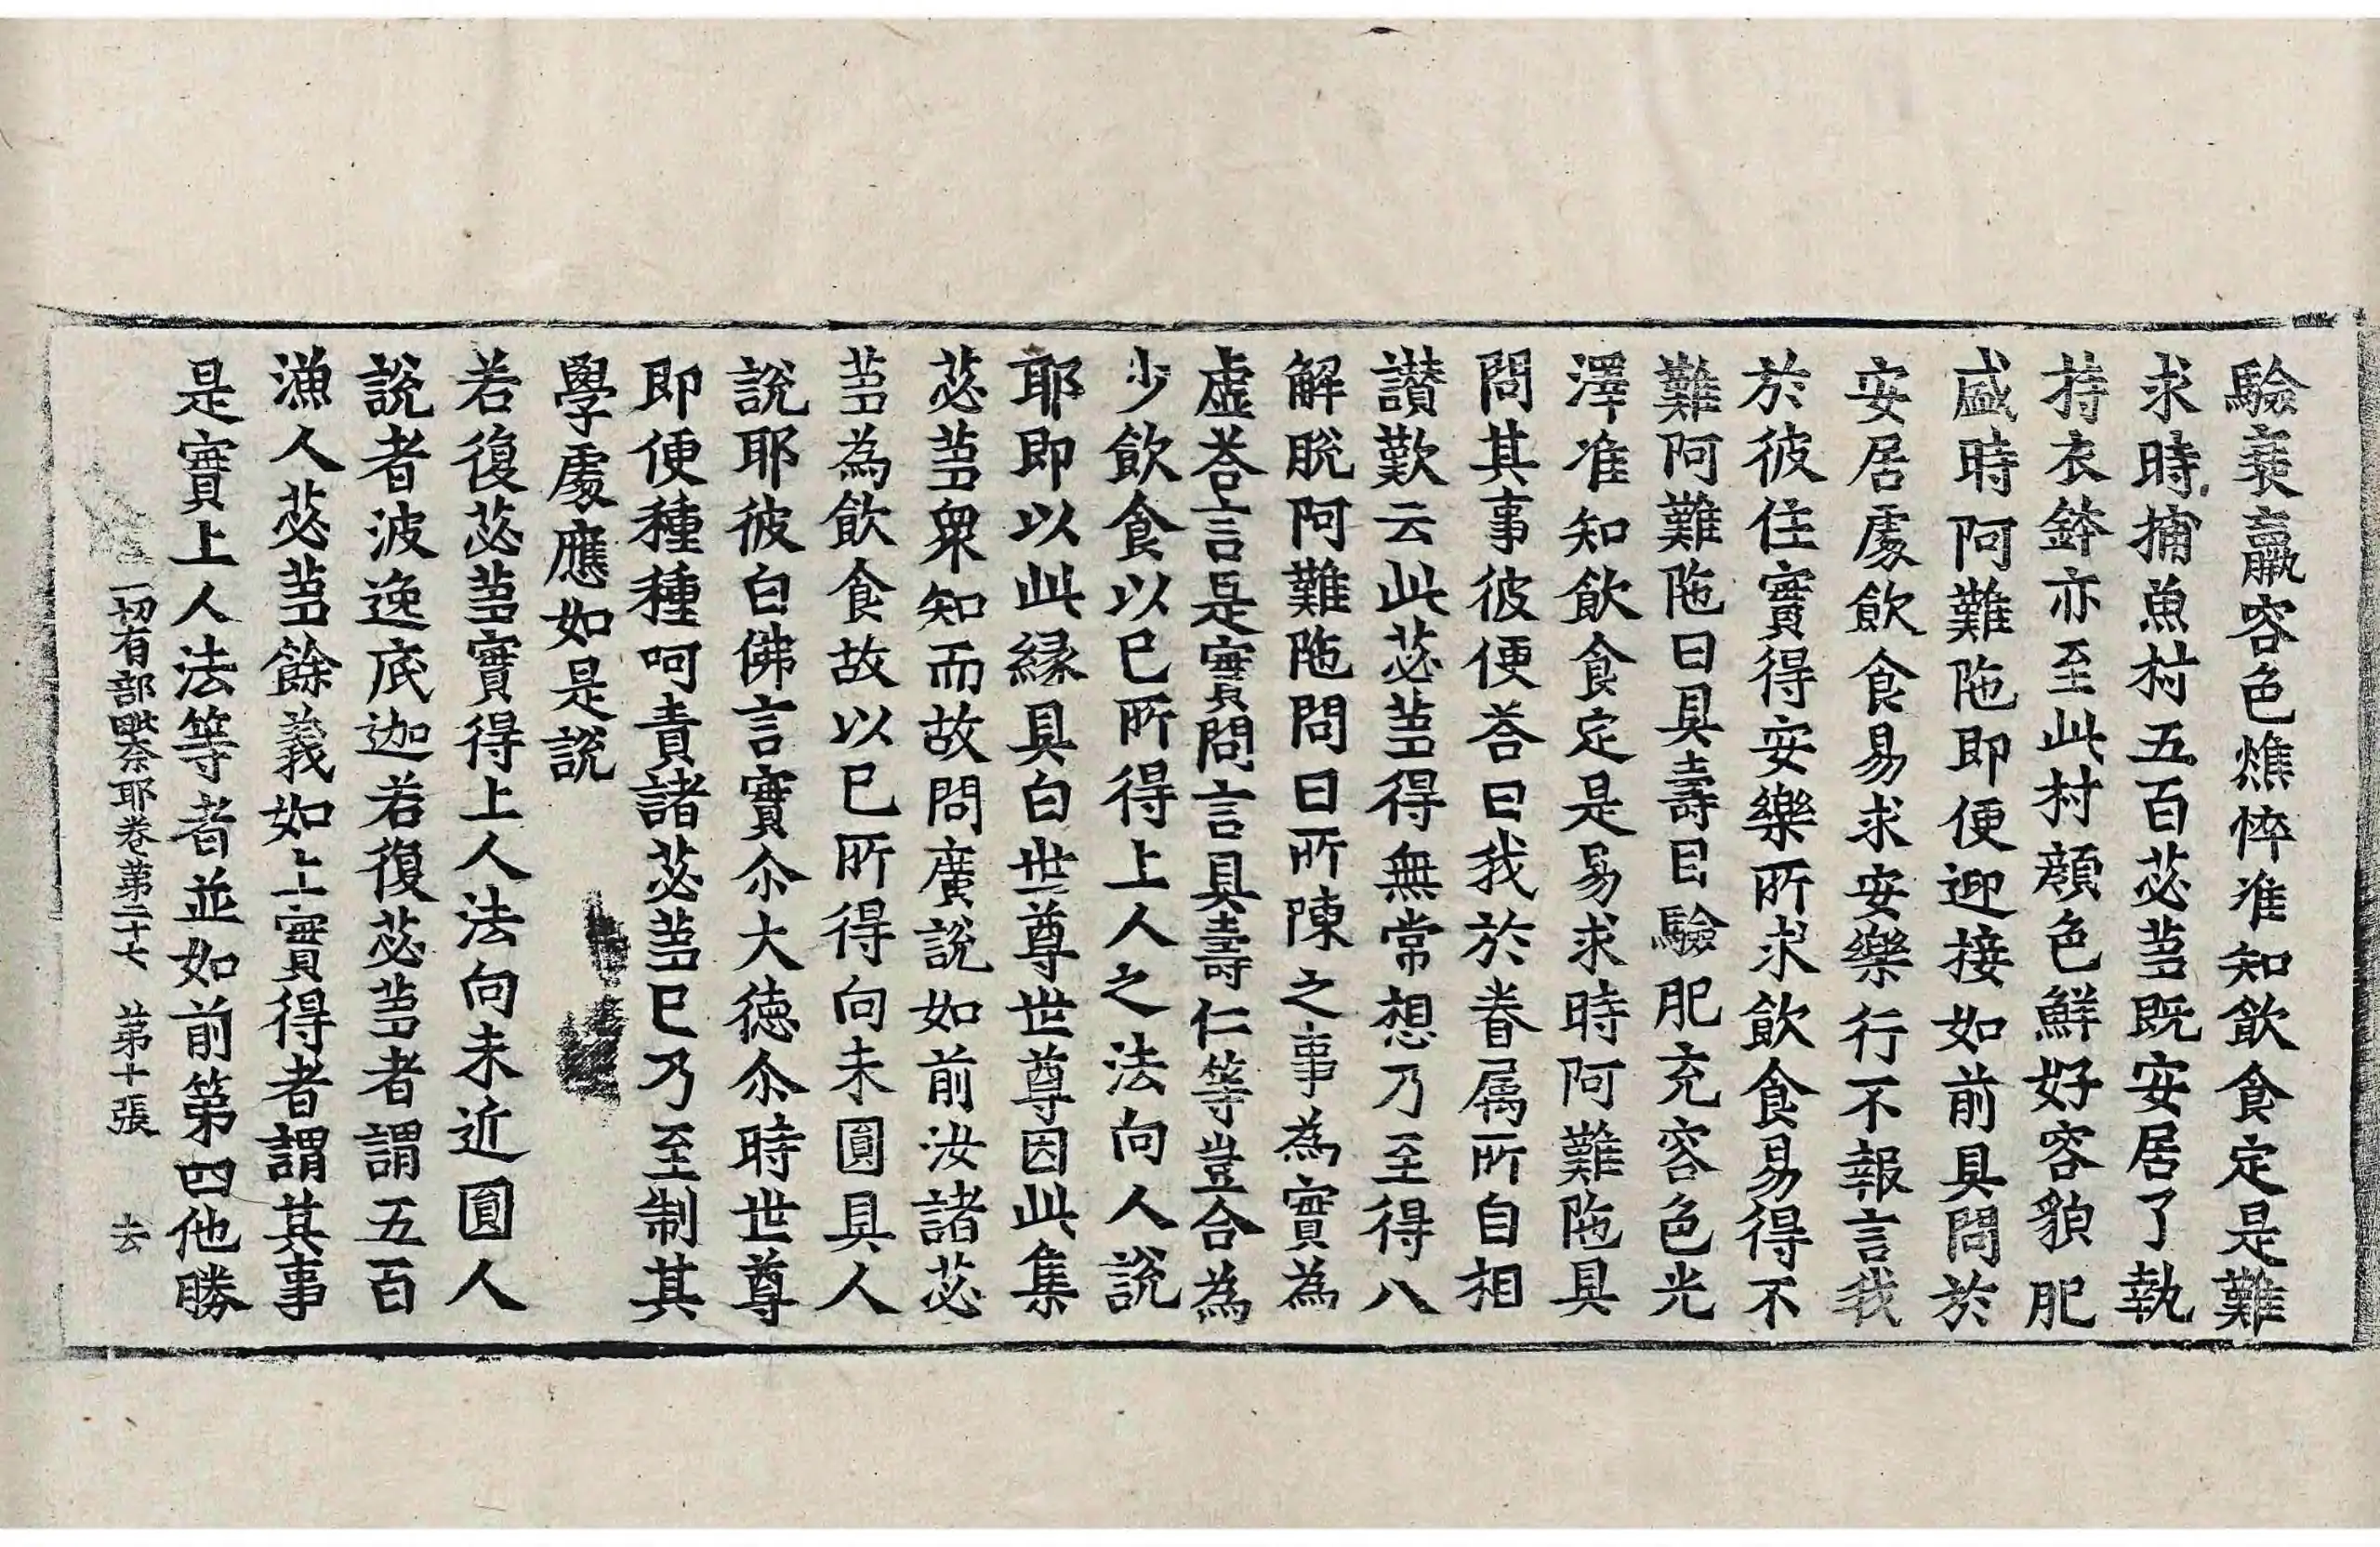 驗衰羸容色燋悴准知飲食定是難
求時捕魚村五百苾蒭既安居了執
持衣鉢亦至此村顔色鮮好容貌肥
盛時阿難陁即便迎接如前具問於
安居處飲食易求安樂行不報言我
於彼住實得安樂所求飲食易得不
難阿難陁曰具壽目驗肥充容色光
澤准知飲食定是易求時阿難陁具
問其事彼便荅曰我於眷属所自相
讃歎云此苾蒭得無常想乃至得八
解脫阿難陁問曰所陳之事為實為
虛荅言是實問言具壽仁等豈合為
少飲食以巳所得上人之法向人說
耶即以此縁具白世尊世尊因此集
苾蒭衆知而故問廣說如前汝諸苾
蒭為飲食故以巳所得向未圓具人
說耶彼白佛言實尒大徳尒時世尊
即便種種呵責諸苾蒭巳乃至制其
學處應如是說
若復苾蒭實得上人法向未近圓人
說者波逸底迦若復苾蒭者謂五百
漁人苾蒭餘義如上實得者謂其事
是實上人法等者並如前第四他勝
一切有部毗奈耶卷第三十七 第十張 去